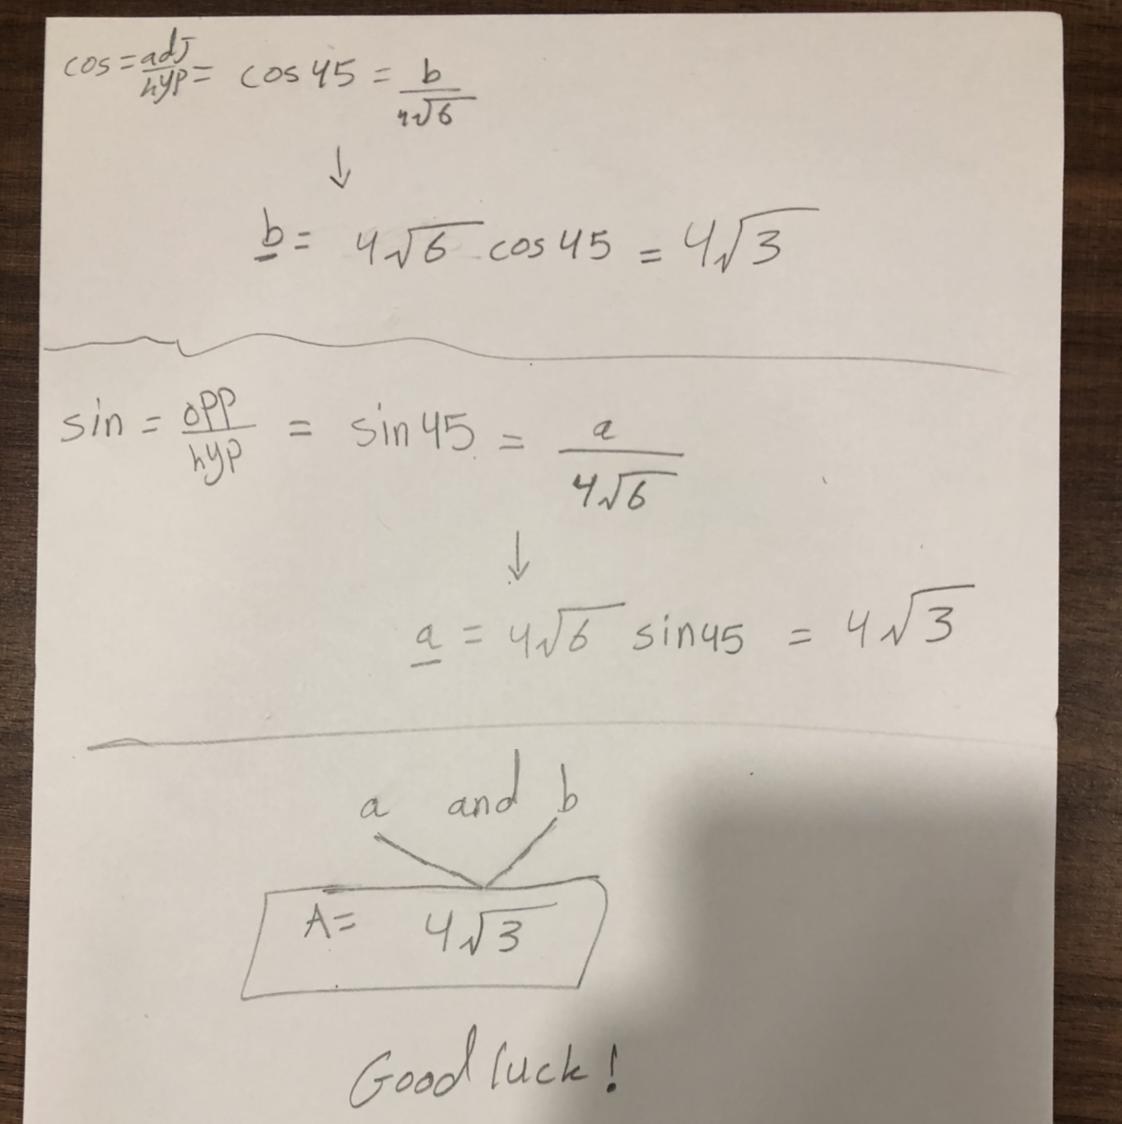 cos = adj/hyp = cos 45 = b/4√6
↓
b = 4√6 cos 45 = 4√3
sin = opp/hyp = sin 45 = a/4√6
↓
a = 4√6 sin 45 = 4√3
a and b
A = 4√3
Good luck!